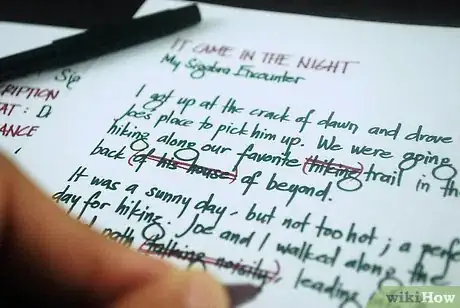 RIPTION
AT : D
ANCE
IT CAME IN THE NIGHT
My Sigabra Encounter
I got up at the crack of dawn and drove
Joe's place to pick him up. We were going
hiking along our favorite (hiking) trail in th
back (of his house) of beyond.
It was a sunny day, but not too hot ; a perf
day for hiking. Joe and I walked along th
path (talking noisily, leading
wikiHow